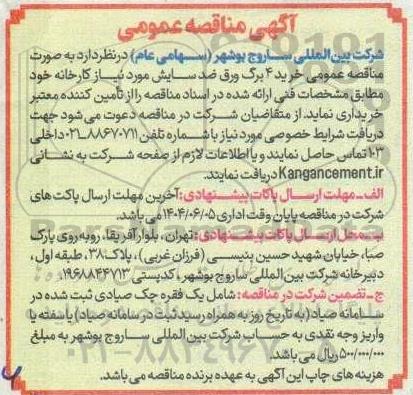 آگهی مناقصه عمومی
شرکت بین‌المللی ساروج بوشهر (سهامی عام) در نظر دارد به صورت
مناقصه عمومی خرید ۴ برگ ورق ضد سایش مورد نیاز کارخانه خود
مطابق مشخصات فنی ارائه شده در اسناد مناقصه را از تأمین کننده معتبر
خریداری نماید. از متقاضیان شرکت در مناقصه دعوت می شود جهت
دریافت شرایط خصوصی مورد نیاز با شماره تلفن ۸۸۶۷۰۷۱۱-۰۲۱ داخلی
۱۰۳ تماس حاصل نمایند و یا اطلاعات لازم از صفحه شرکت به نشانی
Kangancement.ir دریافت نمایند.
الف-مهلت ارسال پاکات پیشنهادی: آخرین مهلت ارسال پاکت های
شرکت در مناقصه پایان وقت اداری ۱۴۰۴/۰۶/۰۵ می باشد.
ب-محل ارسال پاکات پیشنهادی: تهران، بلوار آفریقا، روبه روی پارک
صبا، خیابان شهید حسین بنیسی (فرزان غربی)، پلاک۳۸، طبقه اول،
دبیرخانه شرکت بین‌المللی ساروج بوشهر، کدپستی ۱۹۶۸۸۴۴۷۱۳
ج-تضمین شرکت در مناقصه: شامل یک فقره چک صیادی ثبت شده در
سامانه صیاد (به تاریخ روز به همراه رسید ثبت در سامانه صیاد) یا سفته یا
واریز وجه نقدی به حساب شرکت بین‌المللی ساروج بوشهر به مبلغ
۵۰۰/۰۰۰/۰۰۰ ریال می باشد.
هزینه های چاپ این آگهی به عهده برنده مناقصه می باشد.